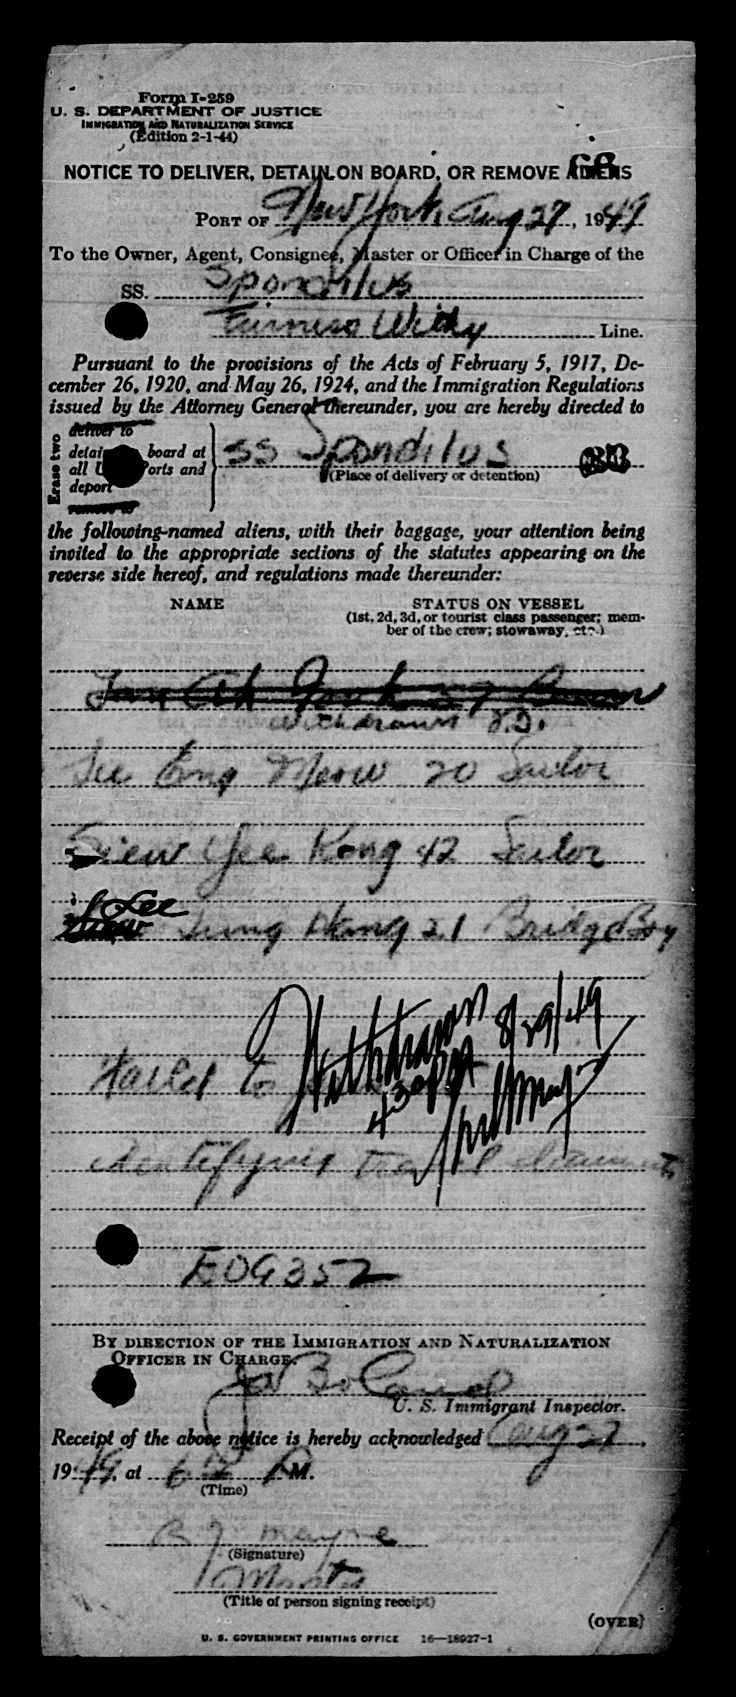 Form I-259
U. S. DEPARTMENT OF JUSTICE
IMMIGRATION AND NATURALIZATION SERVICE
(Edition 2-1-44)
NOTICE TO DELIVER, DETAIN ON BOARD, OR REMOVE ALIENS
PORT OF New York, Aug 27, 1949
To the Owner, Agent, Consignee, Master or Officer in Charge of the
SS. Spondilus
Furness Withy Line.
Pursuant to the provisions of the Acts of February 5, 1917, De-
cember 26, 1920, and May 26, 1924, and the Immigration Regulations
issued by the Attorney General thereunder, you are hereby directed to
Erase two
deliver to
detain board at
all U Ports and
deport
remove to
SS Spondilus
(Place of delivery or detention)
the following-named aliens, with their baggage, your attention being
invited to the appropriate sections of the statutes appearing on the
reverse side hereof, and regulations made thereunder:
NAME STATUS ON VESSEL
(1st, 2d, 3d, or tourist class passenger; mem-
ber of the crew; stowaway, etc.)
withdrawn J.D.
Eng Meow 20 Sailor
Siew Yee Kong 42 Sailor
Lee
21 Bridge Boy
Withdrawn 8/29/49
Failed to
identifying travel documents
E09352
BY DIRECTION OF THE IMMIGRATION AND NATURALIZATION
OFFICER IN CHARGE
U. S. Immigrant Inspector.
Receipt of the above notice is hereby acknowledged Aug 27,
1949, at 6 P M.
(Time)
R J Mayne
(Signature)
Master
(Title of person signing receipt)
(OVER)
U. S. GOVERNMENT PRINTING OFFICE 16—18927-1